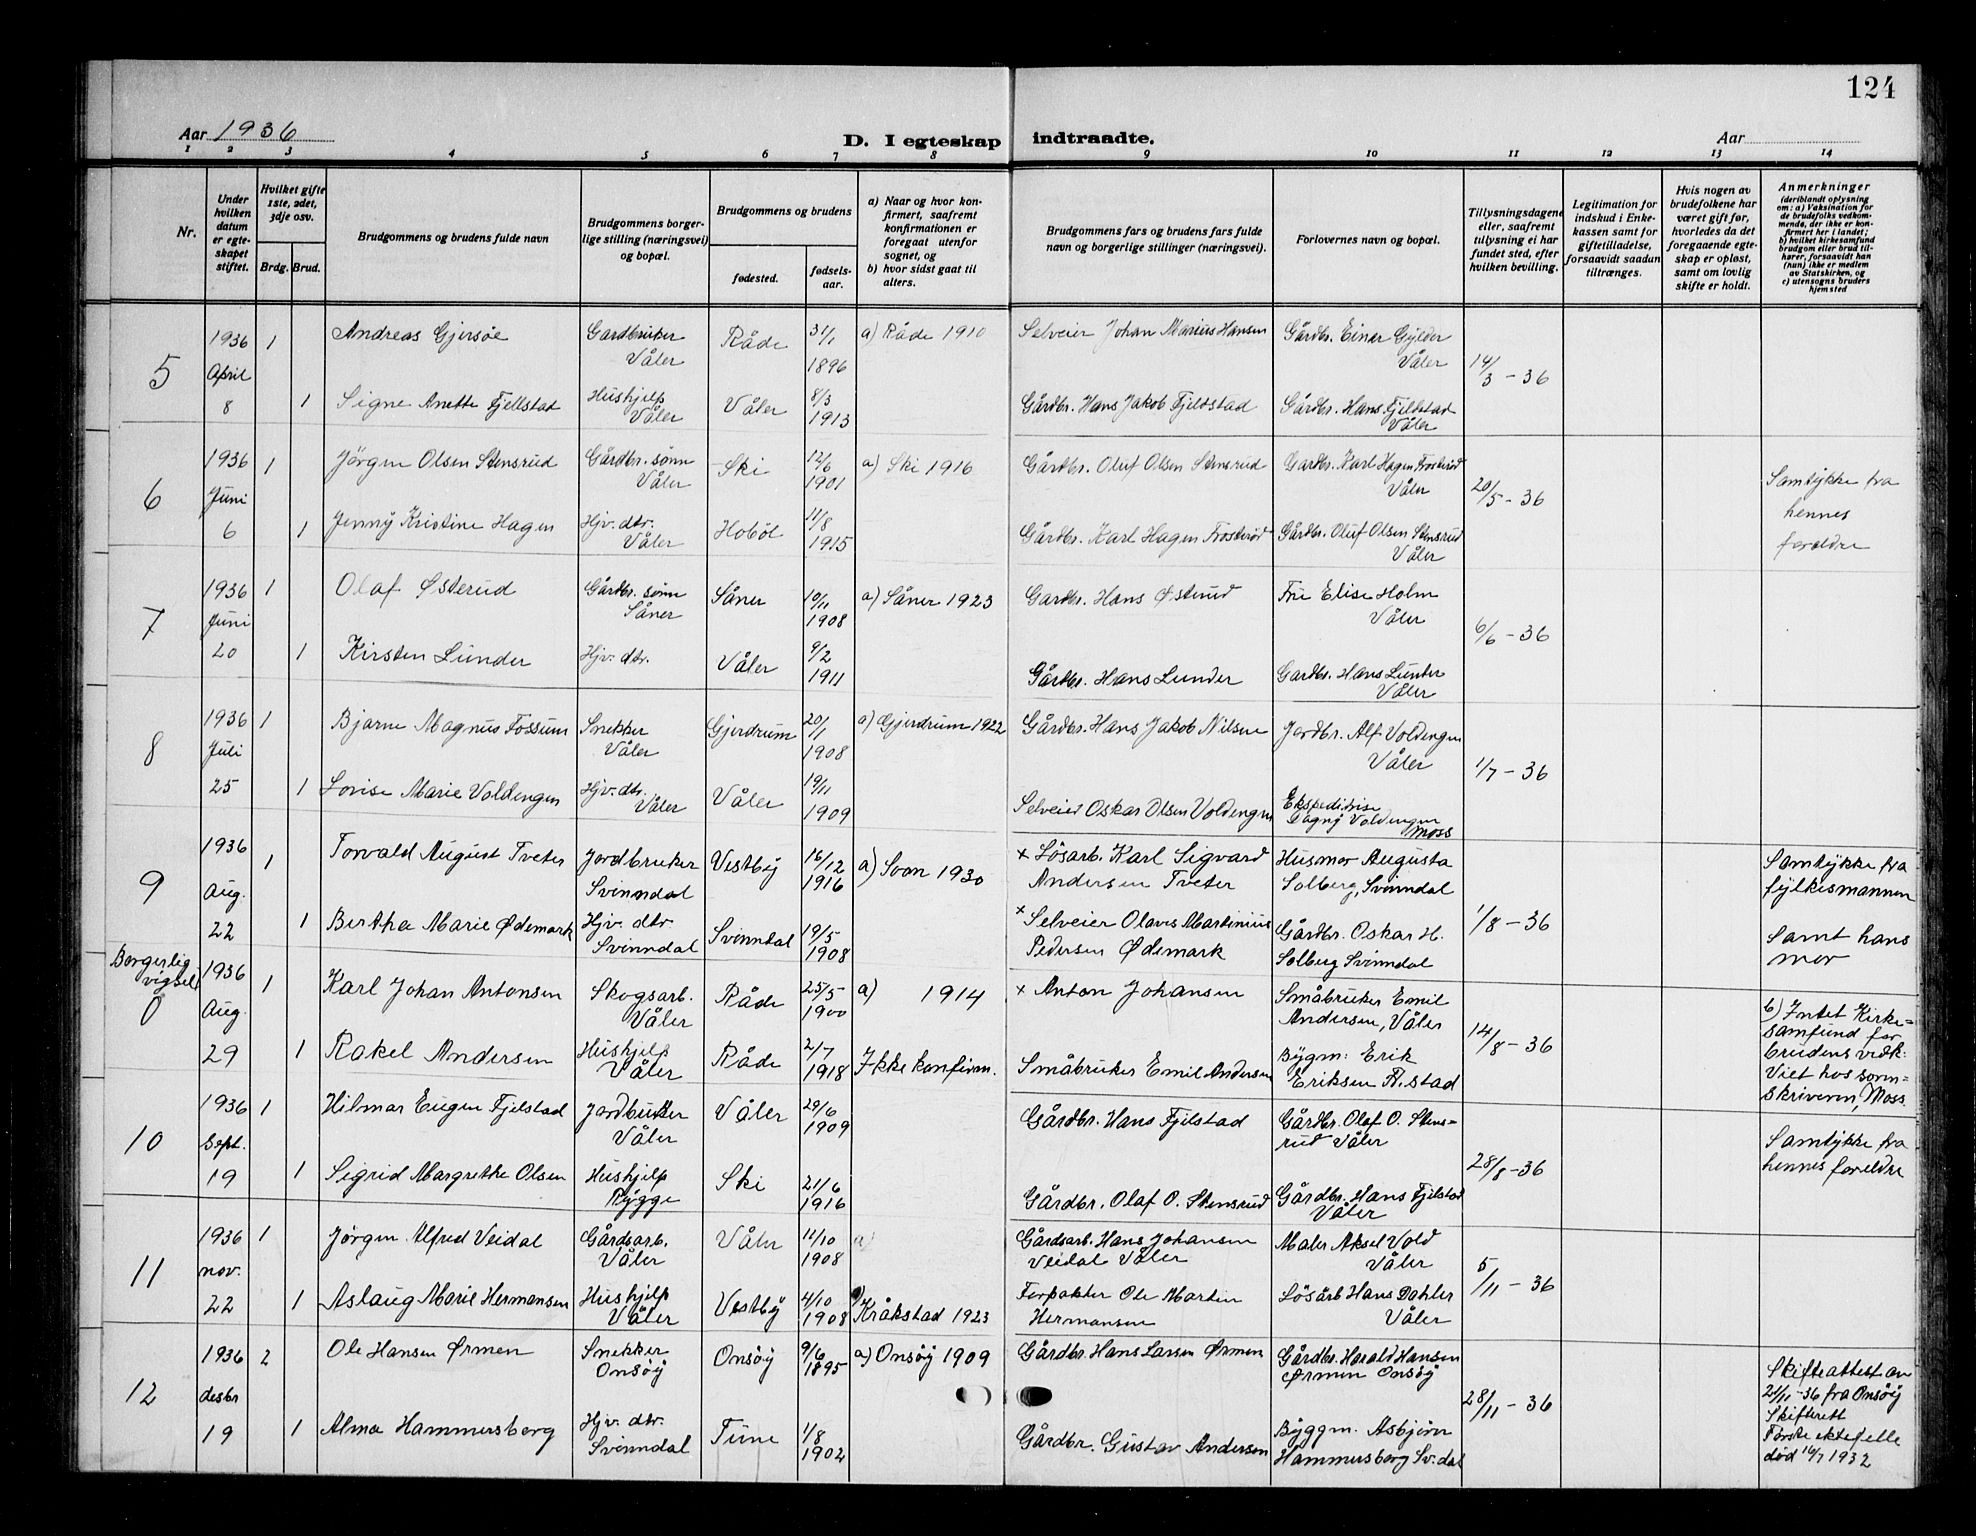 124
Aar 1936
D. I egteskap indtraadte.
Aar
1 2 3 4 5 6 7 8 9 10 11 12 13 14
Nr.
Under hvilken datum er egteskapet stiftet.
Hvilket gifte 1ste, 2det, 3dje osv.
Brdg. Brud.
Brudgommens og brudens fulde navn
Brudgommens borgerlige stilling (næringsvei) og bopæl.
Brudgommens og brudens
fødested.
fødselsaar.
a) Naar og hvor konfirmert, saafremt konfirmationen er foregaat utenfor sognet, og
b) hvor sidst gaat til alters.
Brudgommens fars og brudens fars fulde navn og borgerlige stillinger (næringsvei).
Forlovernes navn og bopæl.
Tillysningsdagene eller, saafremt tillysning ei har fundet sted, efter hvilken bevilling.
Legitimation for indskud i Enkekassen samt for giftetilladelse, forsaavidt saadan tiltrænges.
Hvis nogen av brudefolkene har været gift før, hvorledes da det foregaaende egteskap er opløst, samt om lovlig skifte er holdt.
Anmerkninger
(deriblandt oplysning om: a) Vaksination for de brudefolks vedkommende, der ikke er konfirmert her i landet;
b) hvilket kirkesamfund brudgom eller brud tilhører, forsaavidt han (hun) ikke er medlem av Statskirken, og
c) utensogns bruders hjemsted
5 1936 April 8
1 Andreas Gjersøe Gardbruker Våler Råde 31/1 1896 a) Råde 1910 Selveier Johan Marius Hansen Gårdbr. Einar Gylder Våler 14/3-36
1 Signe Anette Fjellstad Hushjelp Våler Våler 8/3 1913 Gårdbr. Hans Jakob Fjeldstad Gårdbr. Hans Fjeldstad Våler
6 1936 Juni 6
1 Jörgen Olsen Stensrud Gårdbr. sønn Våler Ski 12/6 1901 a) Ski 1916 Gårdbr. Oluf Olsen Stensrud Gardbr. Karl Hagen Frosterød Våler 20/5-36 Samtykke fra hennes foreldre
1 Jenny Kristine Hagen Hjv. dtr. Våler Hoböl 11/8 1915 Gårdbr. Karl Hagen Frosterød Gårdbr. Oluf Olsen Stensrud Våler
7 1936 Juni 20
1 Olaf Østerud Gårdbr. sønn Såner Såner 10/11 1908 a) Såner 1923 Gardbr. Hans Østerud Fru Elise Holm Våler 6/6-36
1 Kirsten Lunder Hjv. dtr. Våler 9/2 1911 Gårdbr. Hans Lunder Gardbr. Hans Lunder Våler
8 1936 Juli 25
1 Bjarne Magnus Fossum Snekker Våler Gjerdrum 20/1 1908 a) Gjerdrum 1922 Gårdbr. Hans Jakob Nilsen Jordbr. Alf Voldengen Våler 1/7-36
1 Lovise Marie Voldengen Hjv. dtr. Våler Våler 19/11 1909 Selveier Oskar Olsen Voldengen Ekspeditrise Dagny Voldengen Moss
9 1936 Aug. 22
1 Torvald August Tveter Jordbruker Svinndal Vestby 16/12 1916 a) Soon 1930 + Løsarb. Karl Sigvard Andersen Tveter Husmor Augusta Solberg, Svinndal 1/8-36 Samtykke fra fylkesmannen samt hans mor
1 Bertha Marie Ødemark Hjv. dtr Svinndal Svinndal 19/5 1908 + Selveier Olaves Martinius Pedersen Ødemark Gårdbr. Oskar H. Solberg Svinndal
Borgerlig vigsel) 0 1936 Aug. 29
1 Karl Johan Antonsen Skogsarb. Våler Råde 25/5 1900 a) 1914 + Anton Johansen Småbruker Emil Andersen, Våler 14/8-36 b) Intet Kirkesamfund for brudens vedk. Viet hos sorenskriveren, Moss
1 Rakel Andersen Hushjelp Våler Råde 2/7 1918 Ikke konfirm. Småbruker Emil Andersen Bygm: Erik Eriksen
10 1936 Sept. 19
1 Hilmar Eugen Fjelstad Jordbruker Våler Våler 29/6 1909 Gårdbr. Hans Fjelstad Gårdbr. Olaf O. Stensrud Våler 28/8-36 Samtykke fra hennes foreldre
1 Sigrid Margrethe Olsen Hushjelp Rygge Ski 21/6 1916 Gårdbr. Olaf O. Stensrud Gårdbr. Hans Fjelstad Våler
11 1936 nov. 22
1 Jørgen Alfred Veidal Gårdsarb. Våler Våler 11/10 1908 a) Gårdsarb. Hans Johansen Veidal Våler Maler Aksel Vold Våler 5/11-36
1 Aslaug Marie Hermansen Hushjelp Våler Vestby 4/10 1908 Kråkstad 1923 Forpakter Ole Martin Hermansen Løsarb Hans Dahler Våler
12 1936 desbr 19
2 Ole Hansen Ørmen Snekker Onsøy Onsøy 9/6 1895 a) Onsøy 1909 Gårdbr Hans Larsen Ørmen Gårdbr. Harald Hansen Ørmen Onsøy 28/11-36 Skifteattest av 21/11-36 fra Onsøy Skifterett Første ektefelle død 16/7 1932
1 Alma Hammersborg Hjv. dtr. Svinndal Tune 1/8 1902 Gårdbr. Gustav Andersen Byggm. Asbjørn Hammersborg Sv.dal